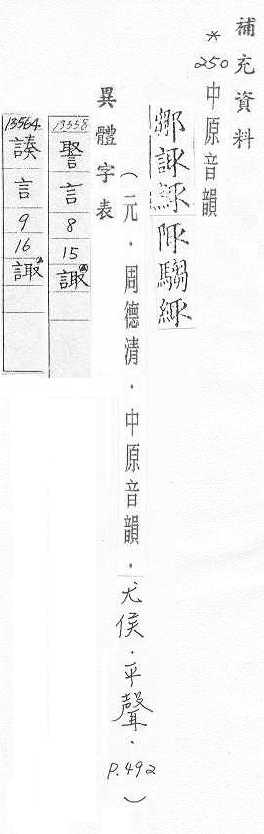 補充資料
*250中原音韻
(元.周德清.中原音韻.尤侯.平聲.P.492)
異體字表
13558
言
8
15
諏
13564
言
9
16
諏